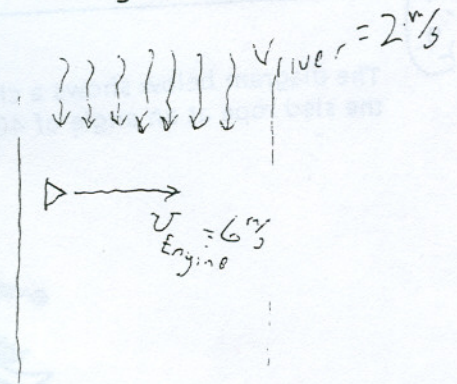 V river = 2 m/s
V Engine = 6 m/s